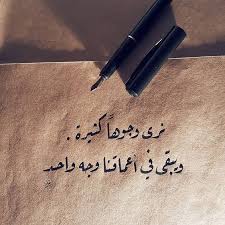 نرى وجوهاً كثيرة .
ويبقى في أعماقنا وجه واحد